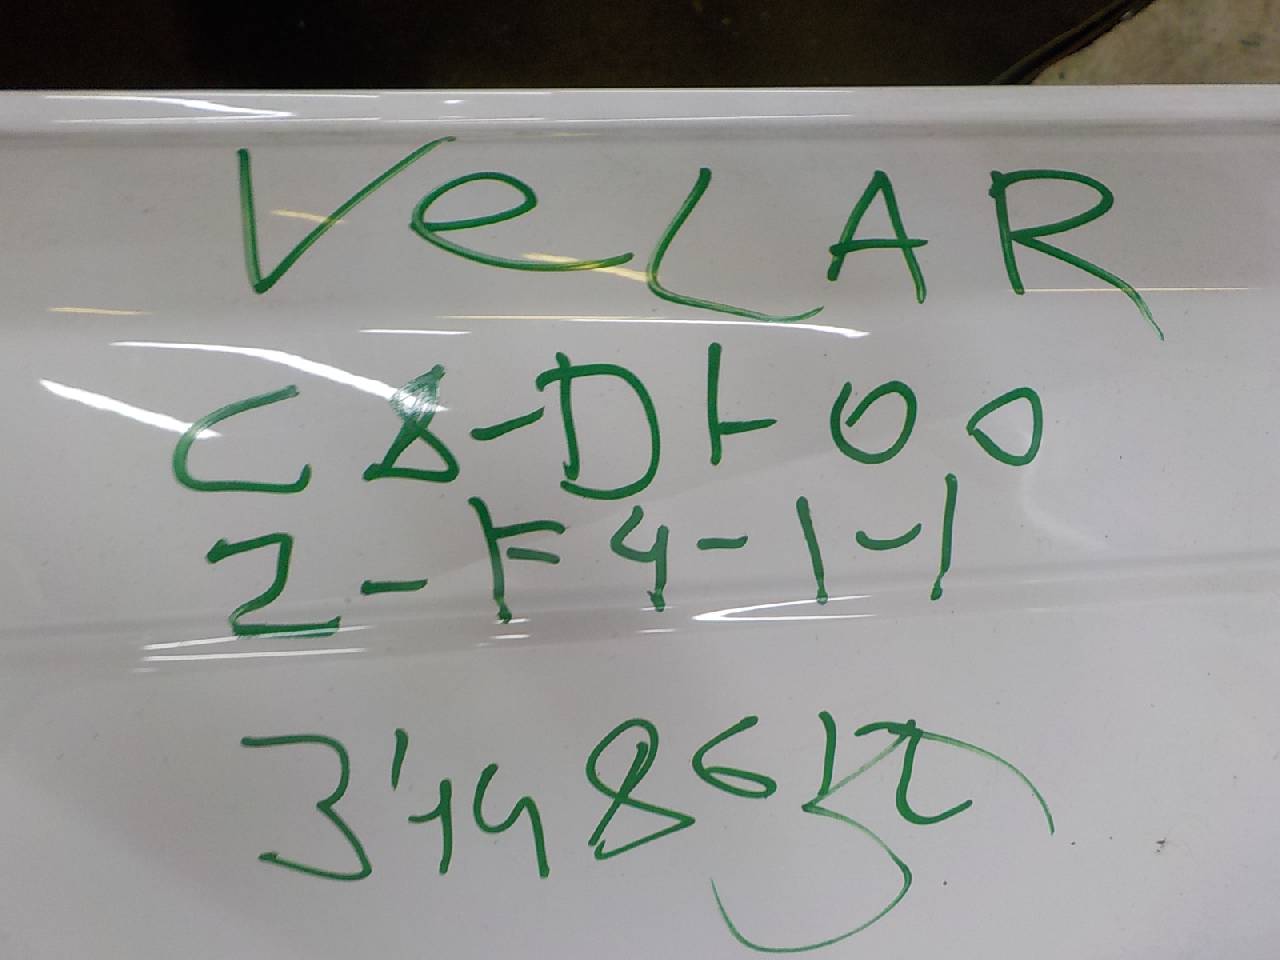 VeLAR
C8-DL00
2-F4-1-1
3'498